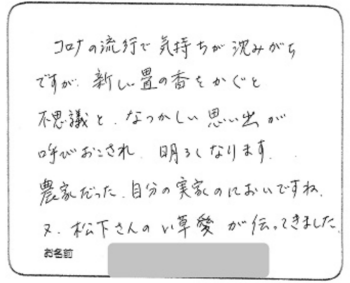 コロナの流行で気持ちが沈みがち
ですが、新しい畳の香をかぐと
不思議と、なつかしい思い出が
呼びおこされ、明るくなります。
農家だった、自分の実家のにおいですね。
又、松下さんのい草愛が伝ってきました。
お名前